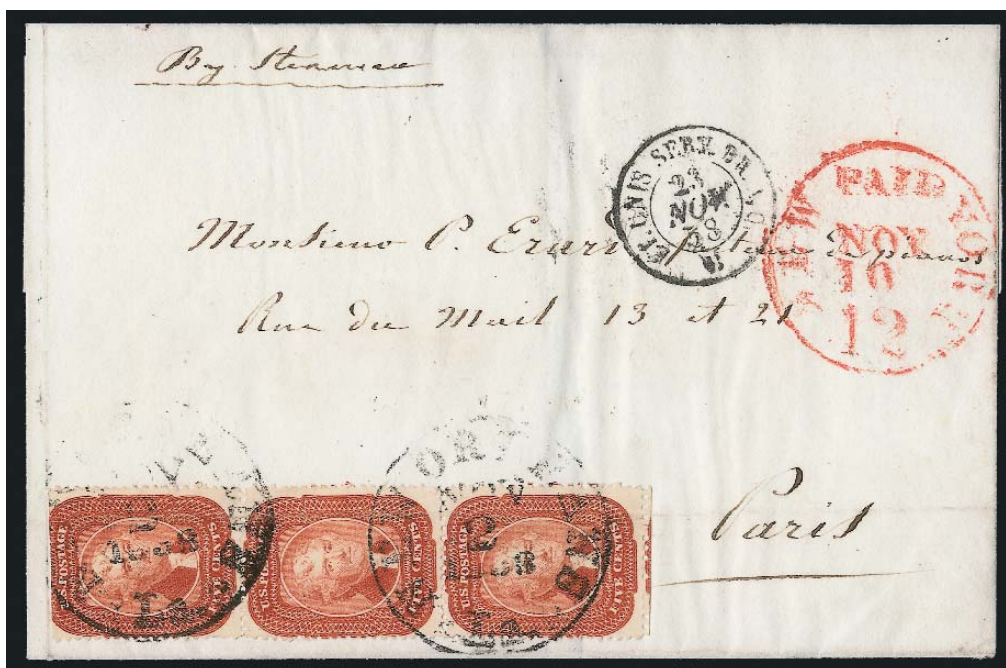 By Steamer
ET. UNIS SERV. BR.
23
NOV
58
NEW YORK
PAID
NOV
10
12
Monsieur P. Erard
Rue du Mail 13 et 21
Paris
U.S. POSTAGE
FIVE CENTS
U.S. POSTAGE
FIVE CENTS
U.S. POSTAGE
FIVE CENTS
NOV
2